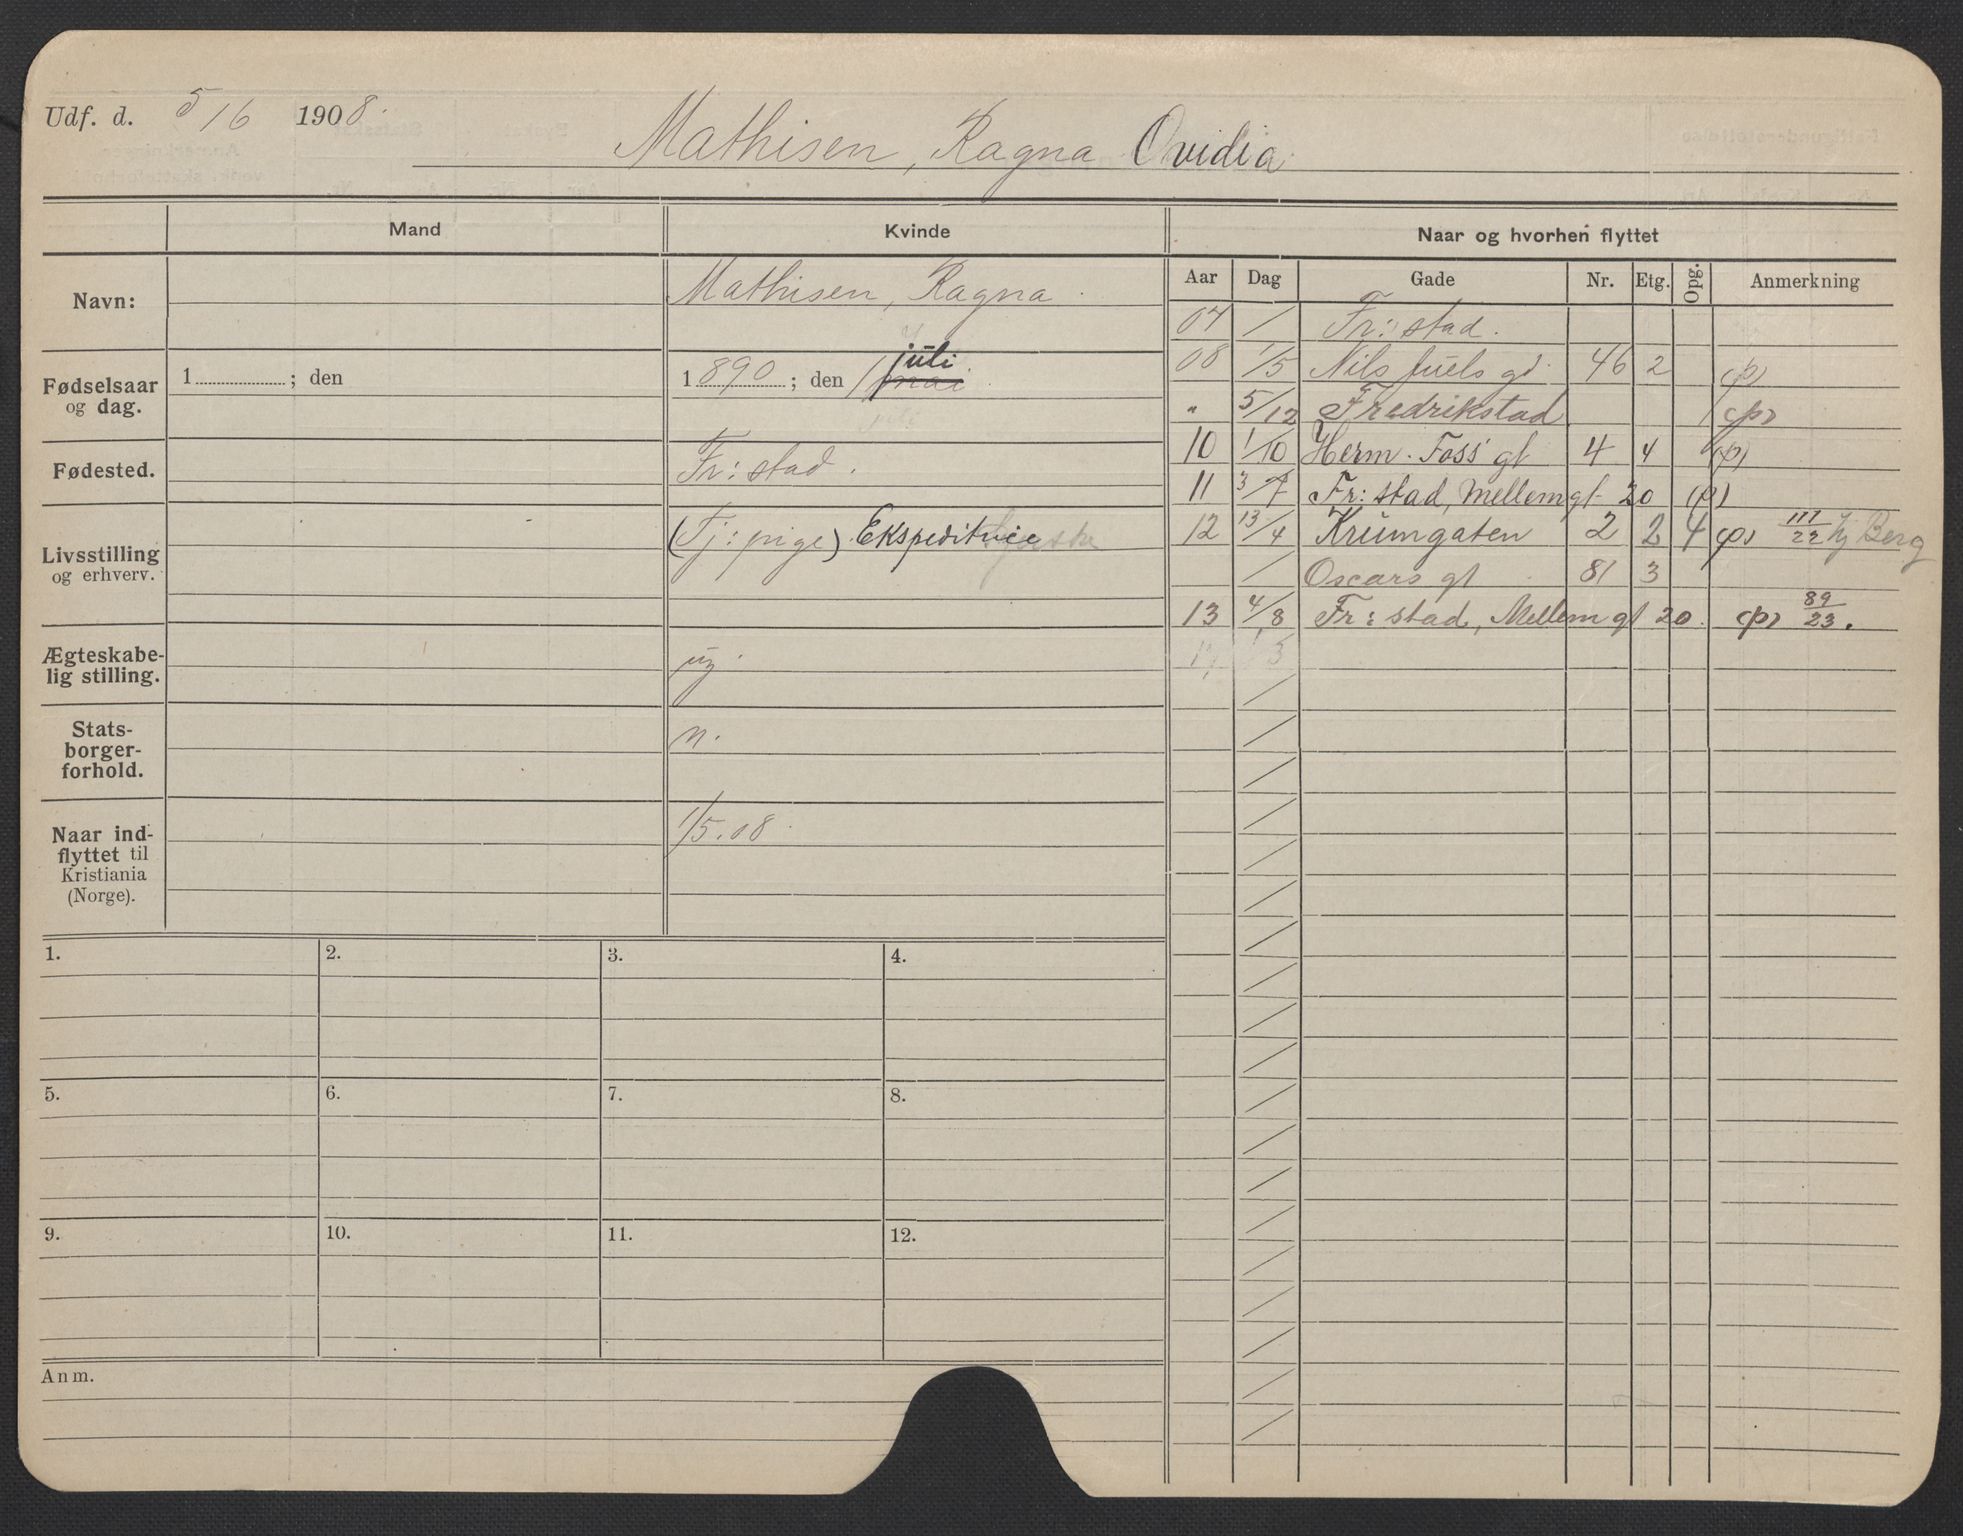 Udf. d. 5/6 1908.
Mathisen, Ragna Ovidia
Mand
Kvinde
Naar og hvorhen flyttet
Aar Dag Gade Nr. Etg. Opg. Anmerkning
Navn:
Mathisen, Ragna.
Fødselsaar
og dag.
1 ; den
1890 ; den 1 mai juli
juli
Fødested.
Fr: stad.
Livsstilling
og erhverv.
(Tj: pige) Ekspeditrice
Ægteskabe-
lig stilling.
ug.
Stats-
borger-
forhold.
n.
Naar ind-
flyttet til
Kristiania
(Norge).
1/5.08.
04 / Fr: stad.
08 1/5 Nils Juels gd. 46 2 (p)
" 5/12 Fredrikstad (p)
10 1/10 Herm. Foss' gt 4 4 (p)
11 3/7 Fr: stad, Mellemgt- 20 (p)
12 13/4 Krumgaten 2 2 4 (p) 111/22 Hj Berg
/ Oscars gt 81 3
13 4/8 Fr: stad, Mellem gt 20. (p) 89/23.
1.
2.
3.
4.
5.
6.
7.
8.
9.
10.
11.
12.
Anm.